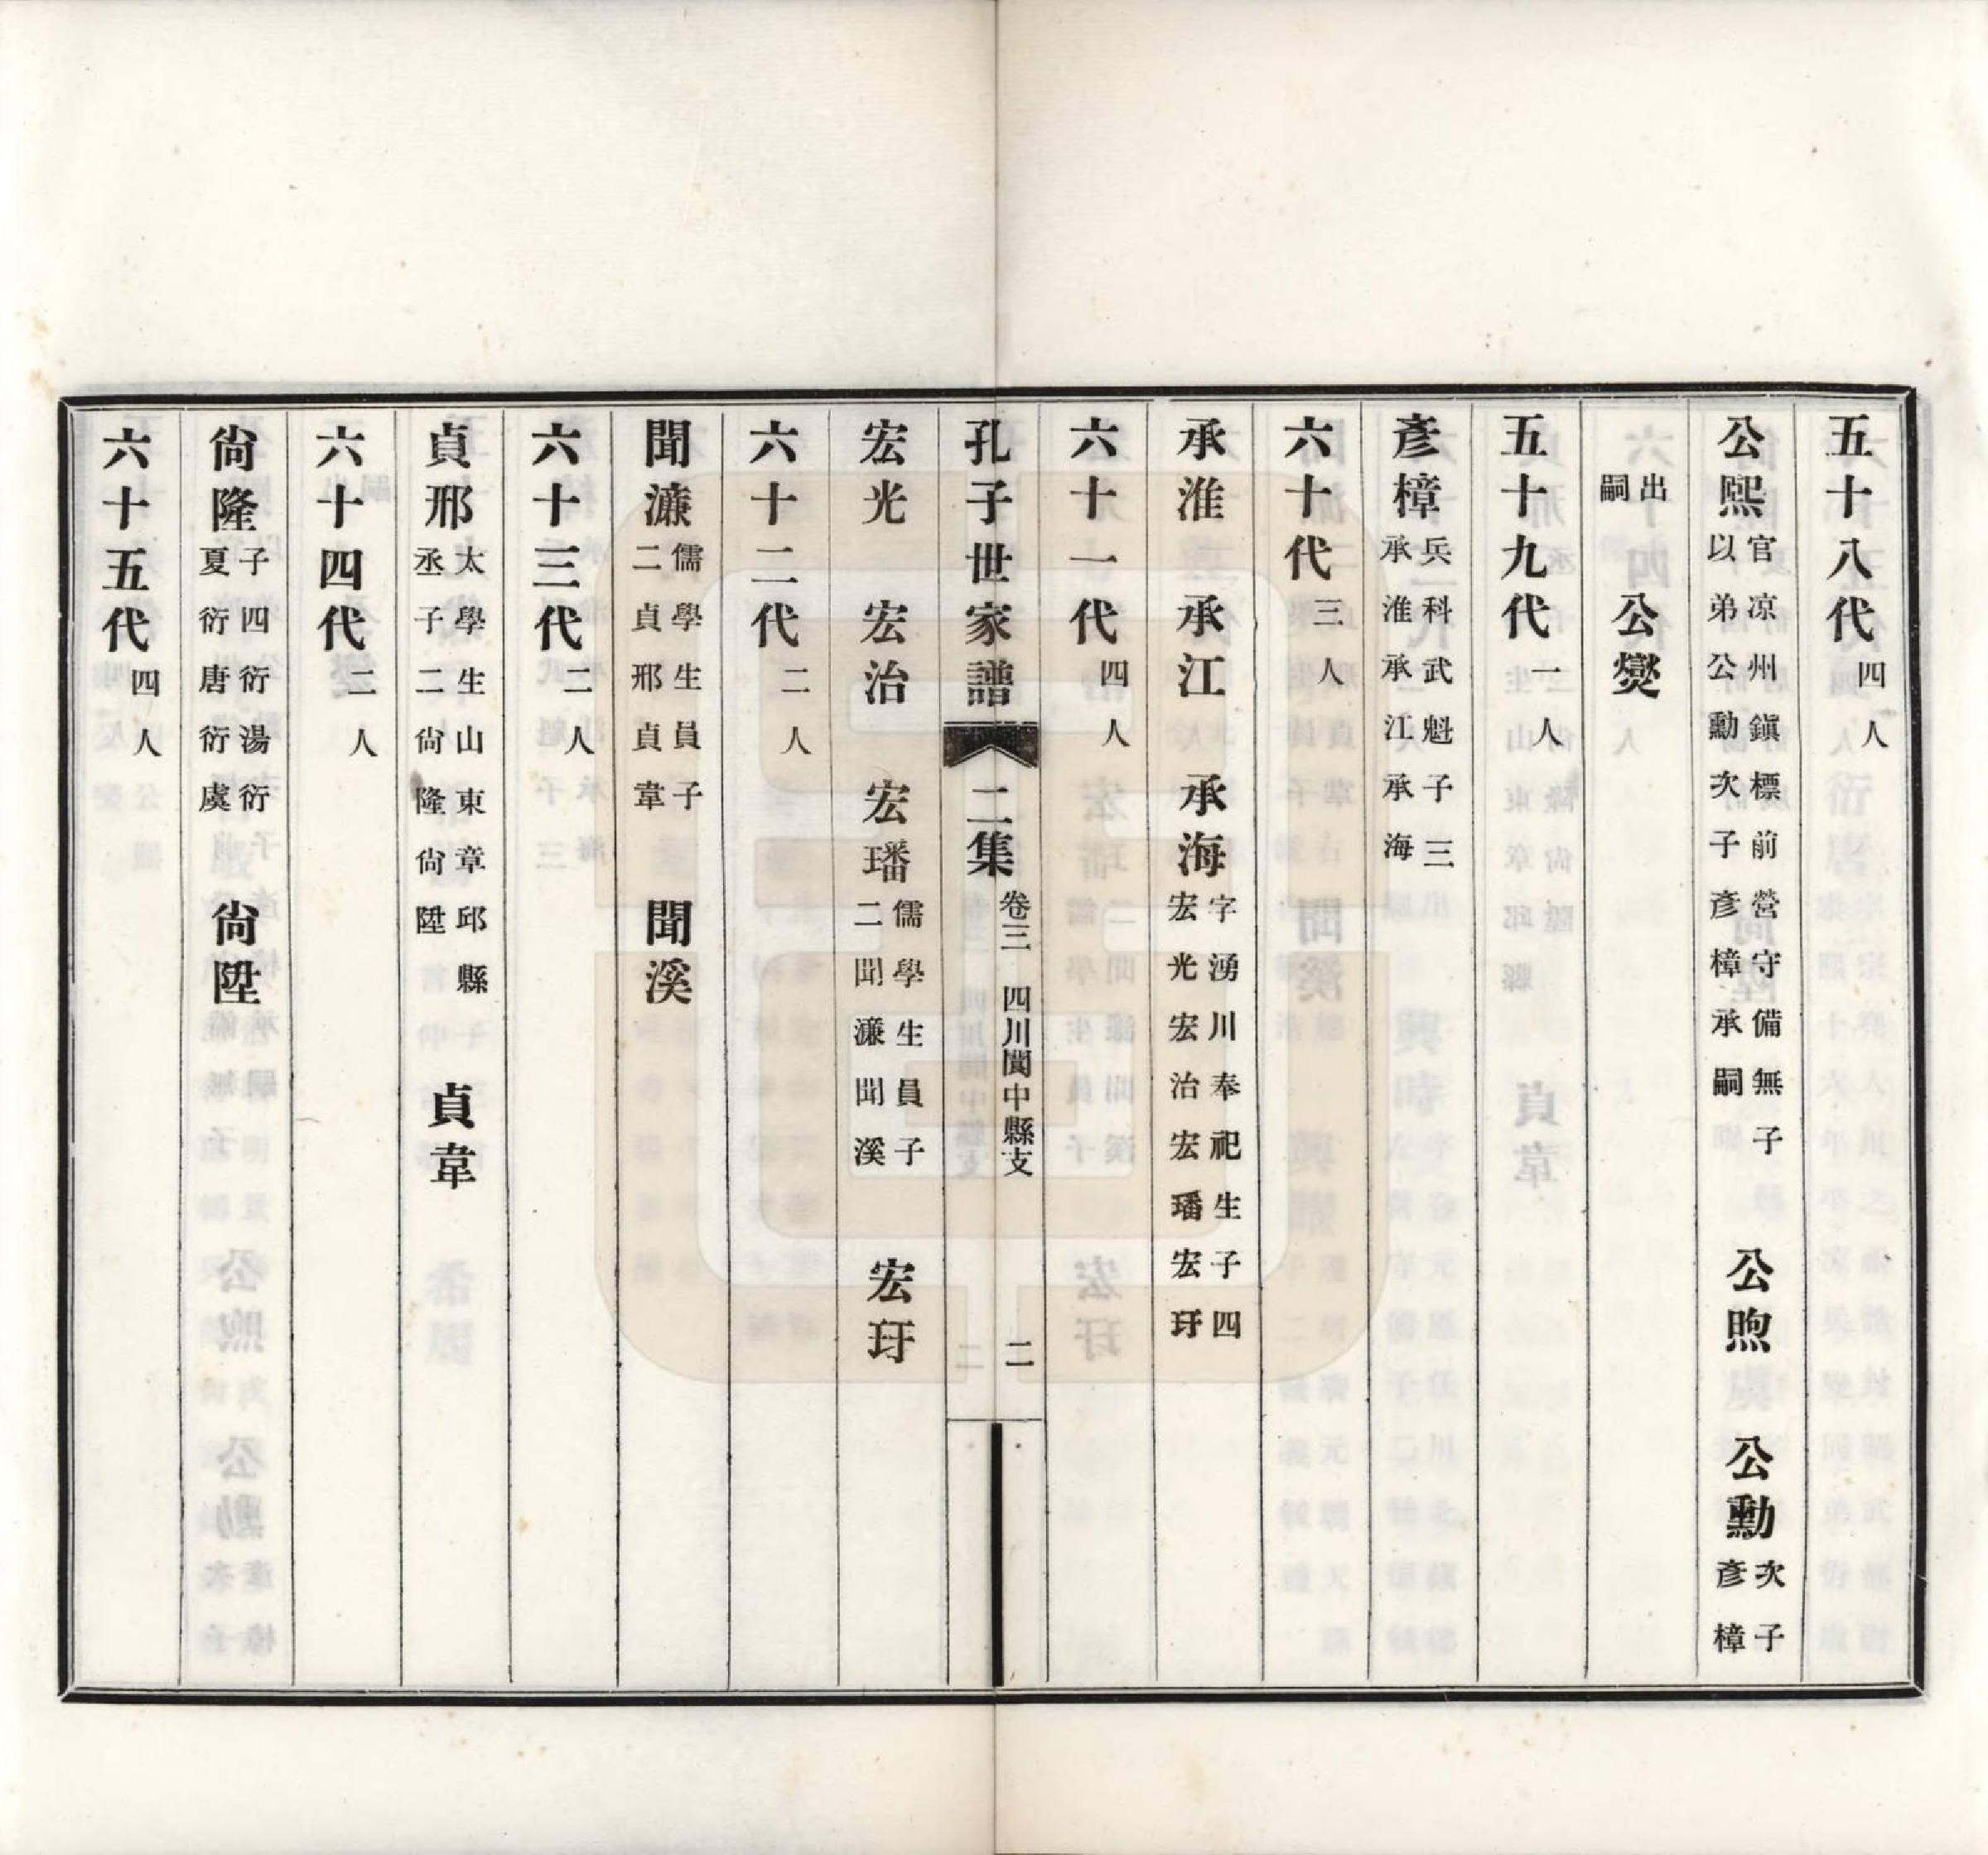 五十八代四人
公熙官凉州鎭標前營守備無子以弟公勳次子彥樟承嗣　公煦　公勳次子彥樟
出嗣　公爕
五十九代一人
彥樟兵科武魁子三承淮承江承海
六十代三人
承淮　承江　承海字湧川奉祀生子四宏光宏治宏璠宏玗
六十一代四人
孔子世家譜　二集　卷三　四川閬中縣支　二
宏光　宏治　宏璠儒學生員子二聞濂聞溪　宏玗
六十二代二人
聞濂儒學生員子二貞邢貞韋　聞溪
六十三代二人
貞邢太學生山東章邱縣丞子二尙隆尙陞　貞韋
六十四代二人
尙隆子四衍湯衍夏衍唐衍虞　尙陞
六十五代四人